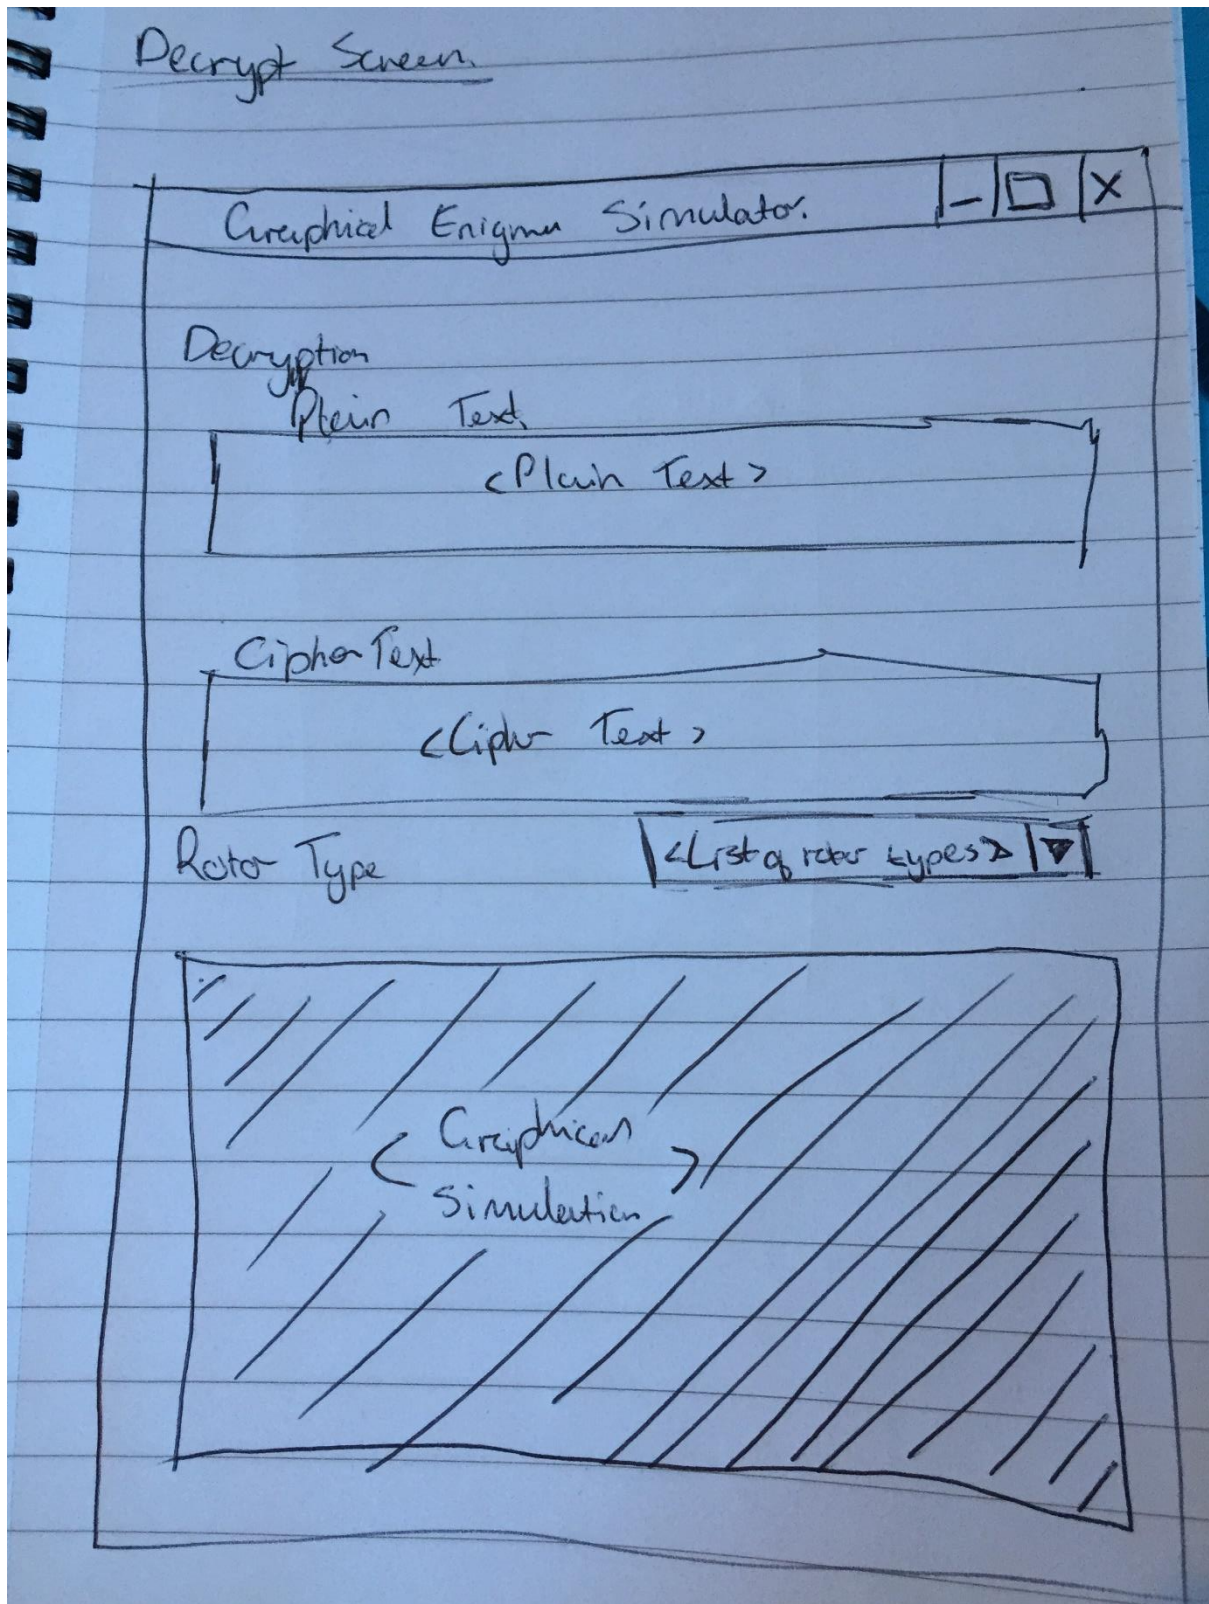 Decrypt Screen.
Graphical Enigma Simulator.
Decryption
Plain Text
<Plain Text>
Cipher Text
<Cipher Text>
Rotor Type
<List of rotor types>
<Graphical
Simulation>